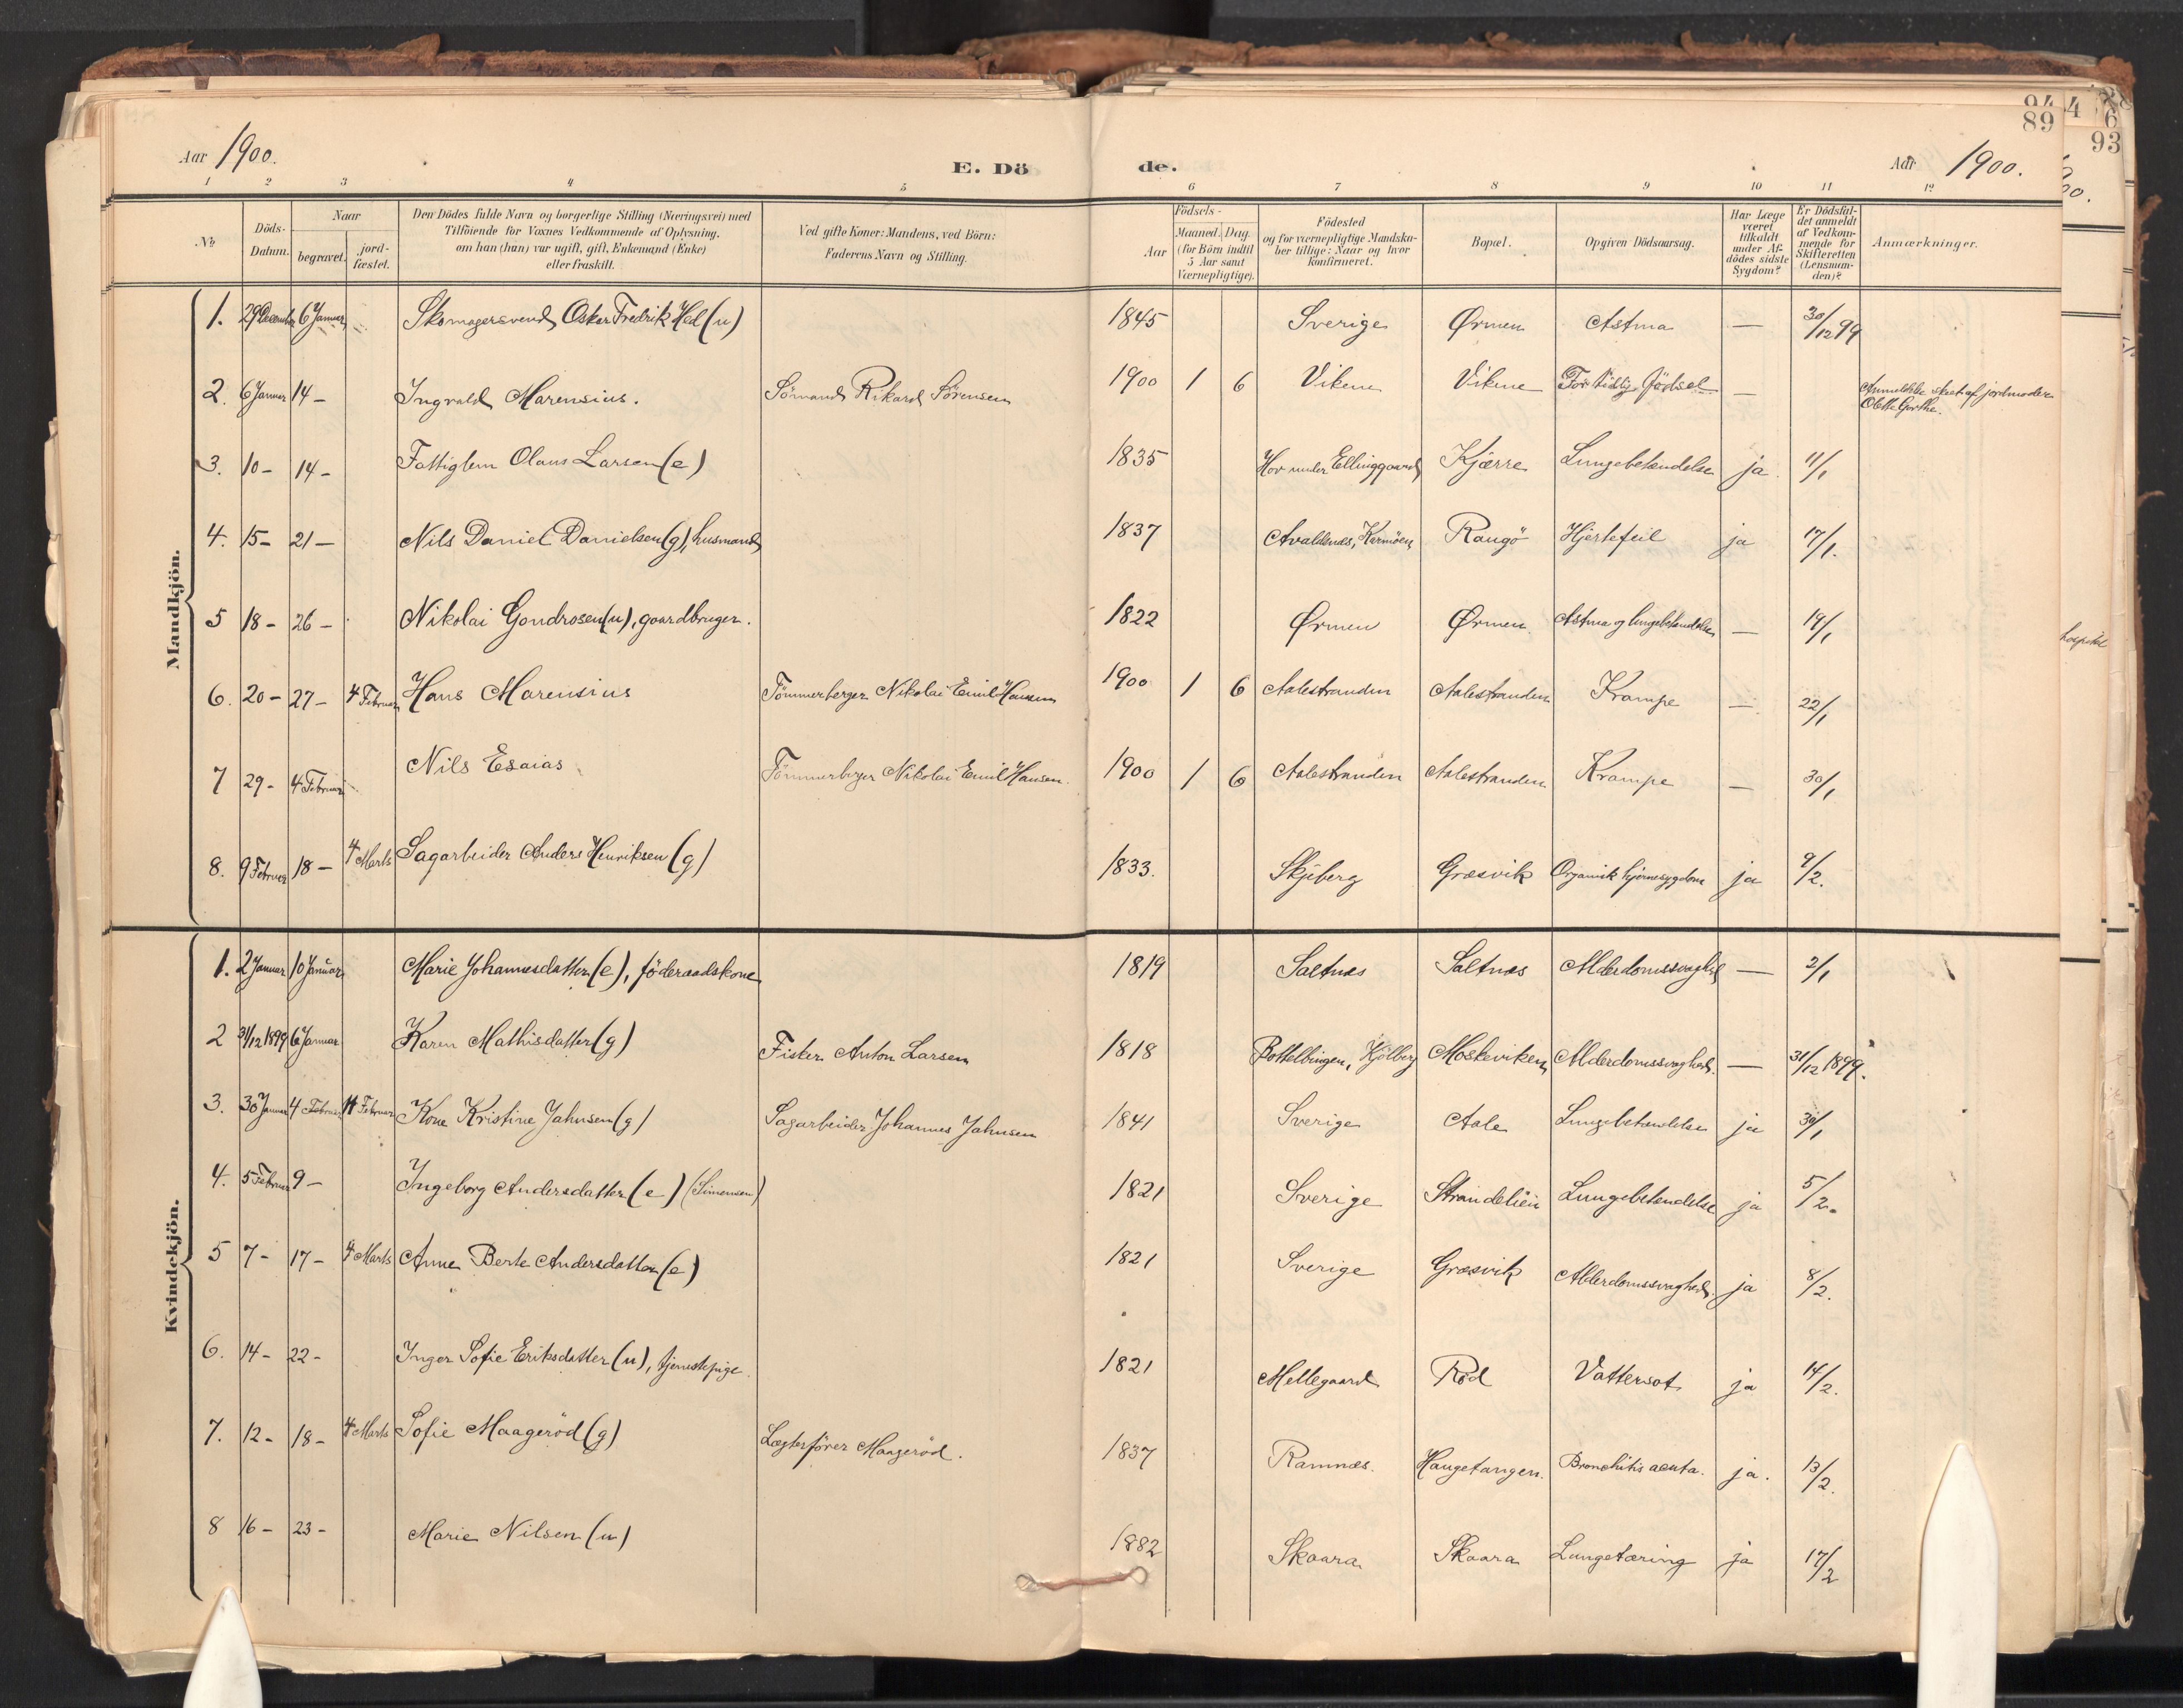 94
89
4
6
93
Aar 1900.
E. Dö
de.
Aar 1900.
1 2 3 4 5 6 7 8 9 10 11 12
No
Döds-
Datum.
Naar
begravet.
jord-
fæstet.
Den Dödes fulde Navn og borgerlige Stilling (Næringsvei) med
Tilföiende for Voxnes Vedkommende af Oplysning,
om han (hun) var ugift, gift, Enkemand (Enke)
eller fraskilt.
Ved gifte Koner: Mandens, ved Börn:
Faderens Navn og Stilling.
Födsels-
Aar
Maaned. Dag.
(for Börn indtil
5 Aar samt
Værnepligtige).
Födested
og for værnepligtige Mandska-
ber tillige: Naar og hvor
konfirmeret.
Bopæl.
Opgiven Dödsaarsag.
Har Læge
været
tilkaldt
under Af-
dödes sidste
Sygdom?
Er Dödsfal-
det anmeldt
af Vedkom-
mende for
Skifteretten
(Lensman-
den)?
Anmærkninger.
Mandkjön.
1. 29 December 6 Januar Skomagersvend Oskar Fredrik Hed (u) 1845 Sverige Ørmen Astma — 30/12 99
2. 6 Januar 14 – Ingvald Marensius. Sömand Rikard Sörensen 1900 1 6 Vikene Vikene For tidlig födsel — Anmeldelse skeet af jordmoder
Olette Grothe.
3. 10 – 14 – Fattiglem Olaus Larsen (e) 1835 Hov under Ellinggaard Kjærre Lungebetændelse ja 11/1
4. 15 – 21 – Nils Daniel Danielsen (g), husmand 1837 Avaldsnes, Karmöen Raugö Hjertefeil ja 17/1.
5 18 – 26 – Nikolai Gondrosen (u), gaardbruger. 1822 Ørmen Ørmen. Astma og lungebetændelse — 19/1
6. 20 – 27 – 4 Februar Hans Marensius Tömmerberger Nikolai Emil Hansen 1900 1 6 Aalestranden Aalestranden Krampe — 22/1
7 29 – 4 Februar Nils Esaias Tömmerberger Nikolai Emil Hansen. 1900 1 6 Aalestranden Aalestranden Krampe — 30/1
8. 9 Februar 18 – 4 Marts Sagarbeider Anders Henriksen (g) 1833. Skjeberg Græsvik Organisk hjernesygdom ja 9/2.
Kvindekjön.
1. 2 Januar 10 Januar Marie Johannesdatter (e), föderaadskone 1819 Saltnes Saltnæs Alderdomssvaghed — 2/1
2 31/12 1899 6 Januar Karen Mathisdatter (g) Fisker Anton Larsen 1818 Kjölberg Moskeviken Alderdomssvaghed. — 31/12 1899.
3. 30 Januar 4 Februar 11 Februar Kone Kristine Jahnsen (g) Sagarbeider Johannes Jahnsen 1841 Sverige Aale Lungebetændelse ja 30/1
4. 5 Februar 9 – Ingeborg Andersdatter (e) (Simensen) 1821 Sverige Strandelien Lungebetændelse ja 5/2.
5 7 – 17 – 4 Marts Anne Berte Andersdatter (e) 1821 Sverige Græsvik Alderdomssvaghed. ja 8/2.
6. 14 – 22 – Inger Sofie Eriksdatter (u), tjenestepige. 1821 Mellegaard Röd Vattersot ja 14/2.
7. 12 – 18 – 4 Marts Sofie Maageröd (g) Lægterförer Maageröd. 1837 Ramnæs. Haugetangen. Bronchitis acuta. ja. 13/2.
8 16 – 23 – Marie Nilsen (u) 1882 Skaara Skaara Lungetæring ja 17/2